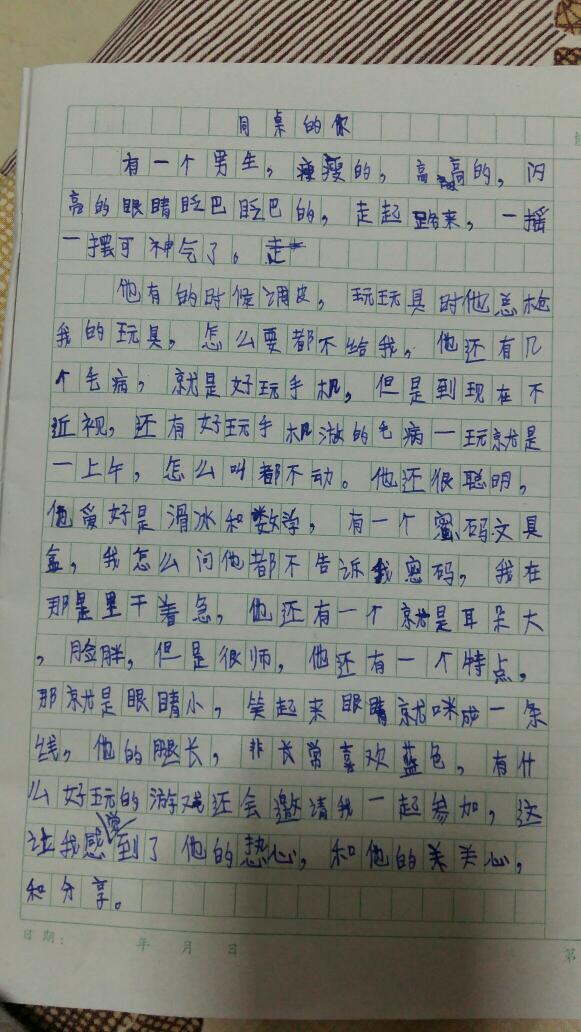 同桌的你
有一个男生，瘦瘦的，高高的，闪
亮的眼睛眨巴眨巴的，走起路来，一摇
一摆可神气了。走
他有的时候调皮，玩玩具时他总枪
我的玩具，怎么要都不给我，他还有几
个毛病，就是好玩手机，但是到现在不
近视，还有好玩手机游的毛病一玩就是
一上午，怎么叫都不动。他还很聪明，
他爱好是滑冰和数学，有一个蜜码文具
盒，我怎么问他都不告诉我密码，我在
那是里干着急，他还有一个就是耳朵大
，脸胖，但是很师，他还有一个特点，
那就是眼睛小，笑起来眼睛就咪成一条
线，他的腿长，非长常喜欢蓝色，有什
么好玩的游戏还会邀请我一起参加，这
让我感觉到了他的热心，和他的关关心，
和分享。
日期： 年 月 日
第